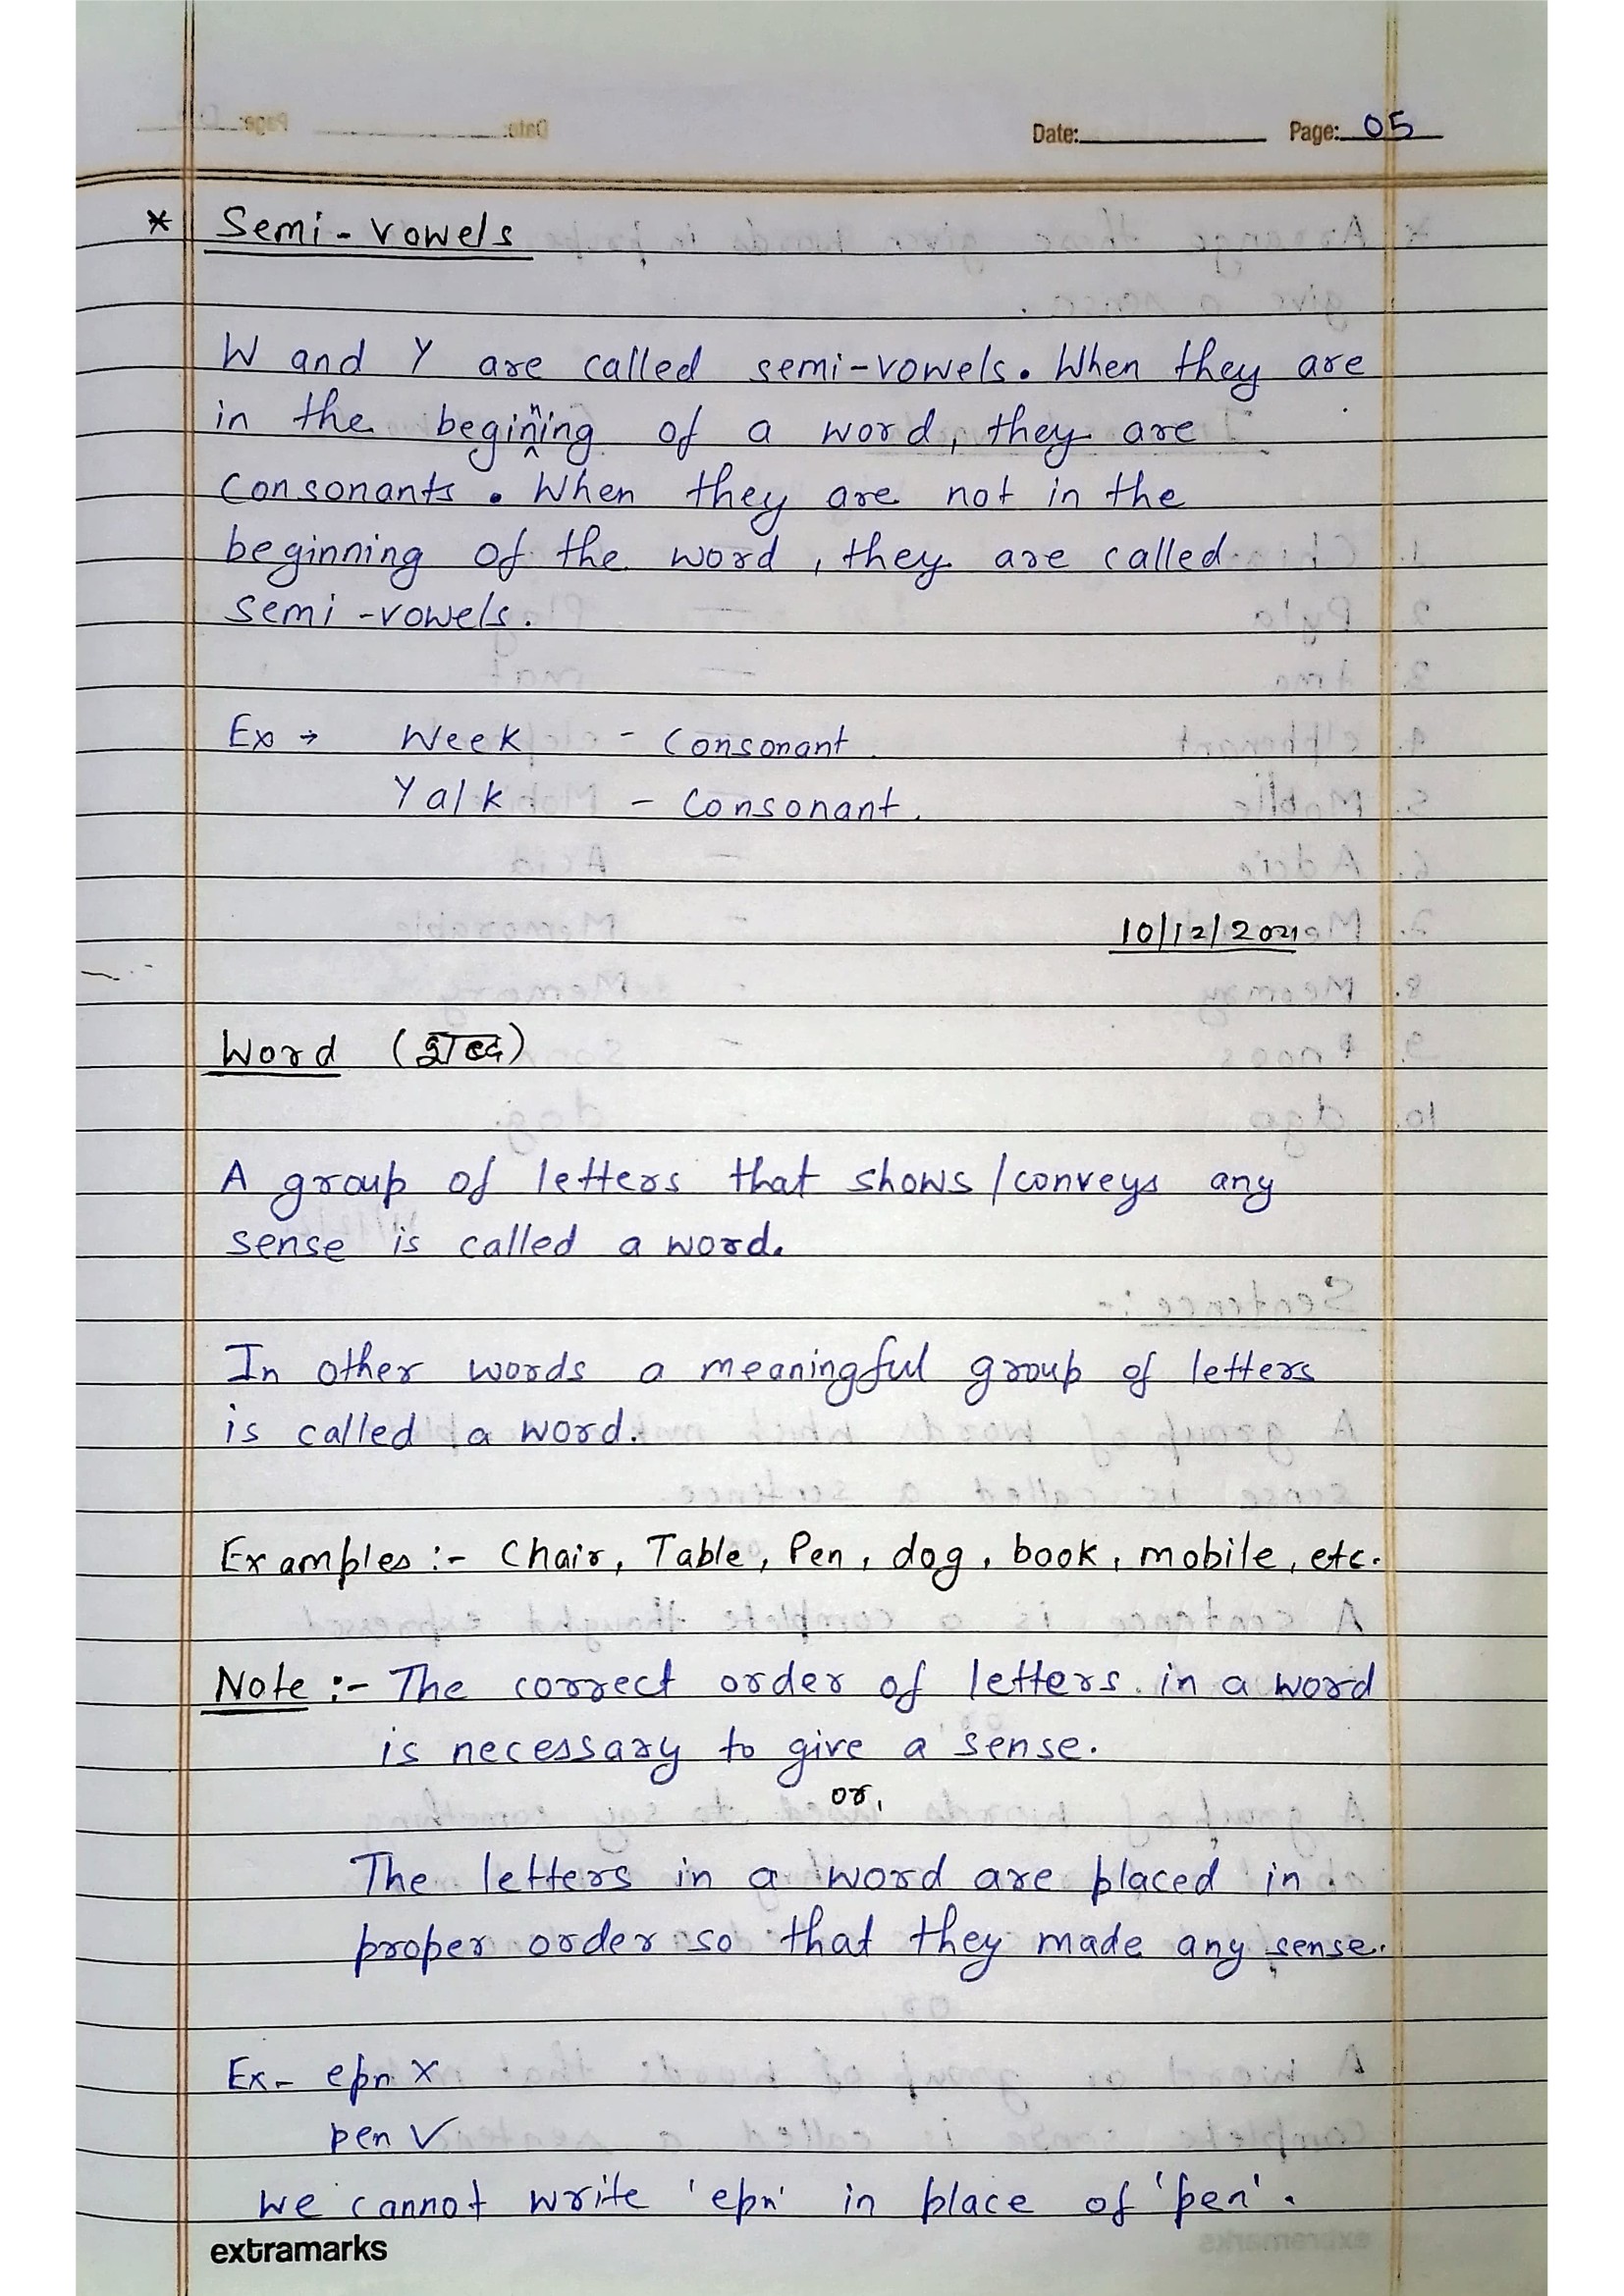 Date: Page: 05
* Semi-vowels
W and Y are called semi-vowels. When they are
in the beginning of a word, they are
consonants. When they are not in the
beginning of the word, they are called
semi-vowels.
Ex → Week - Consonant
Yalk - Consonant.
10/12/2021
Word (शब्द)
A group of letters that shows/conveys any
sense is called a word.
In other words a meaningful group of letters
is called a word.
Examples :- Chair, Table, Pen, dog, book, mobile, etc.
Note :- The correct order of letters in a word
is necessary to give a sense.
or,
The letters in a word are placed in
proper order so that they made any sense.
Ex- epn x
pen ✓
we cannot write 'epn' in place of 'pen'.
extramarks